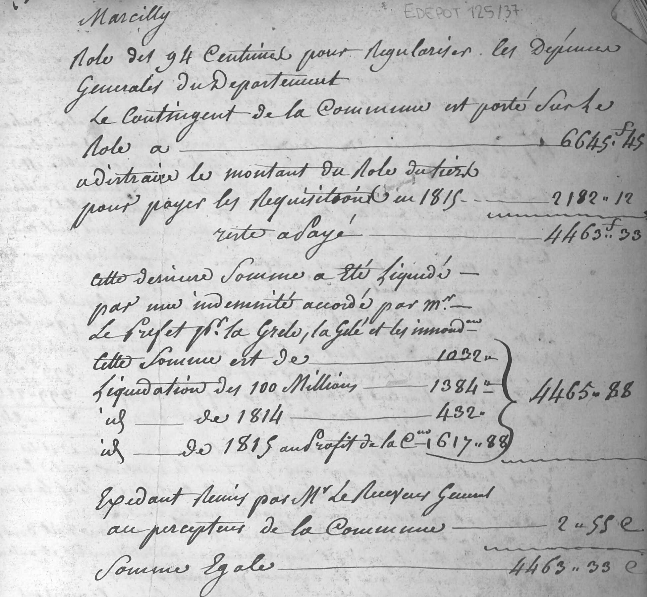 EDEPOT 125/37
Marcilly
Role des 94 Centimes pour Regulariser les Depenses
Generales du Departement
Le Contingent de la Commune est porté Sur le
Role a 6645 f 45
adistraire le montant du Role du tiers
pour payer les Requisitions en 1815 2182 " 12
reste a Payé 4463 f 33
Cette derniere Somme a Eté Liquidé
par une indemnité accordé par mr.
Le Prefet pr. la Grele, la Gelé et les innondons
Cette Somme est de 1032 "
Liquidation des 100 Millions 1384 " 4465 " 88
id de 1814 432 "
id de 1815 au Profit de la Cne 1617 " 88
Exedant Remis par Mr Le Receveur General
au percepteur de la Commune 2 " 55 c
Somme Egale 4463 " 33 c